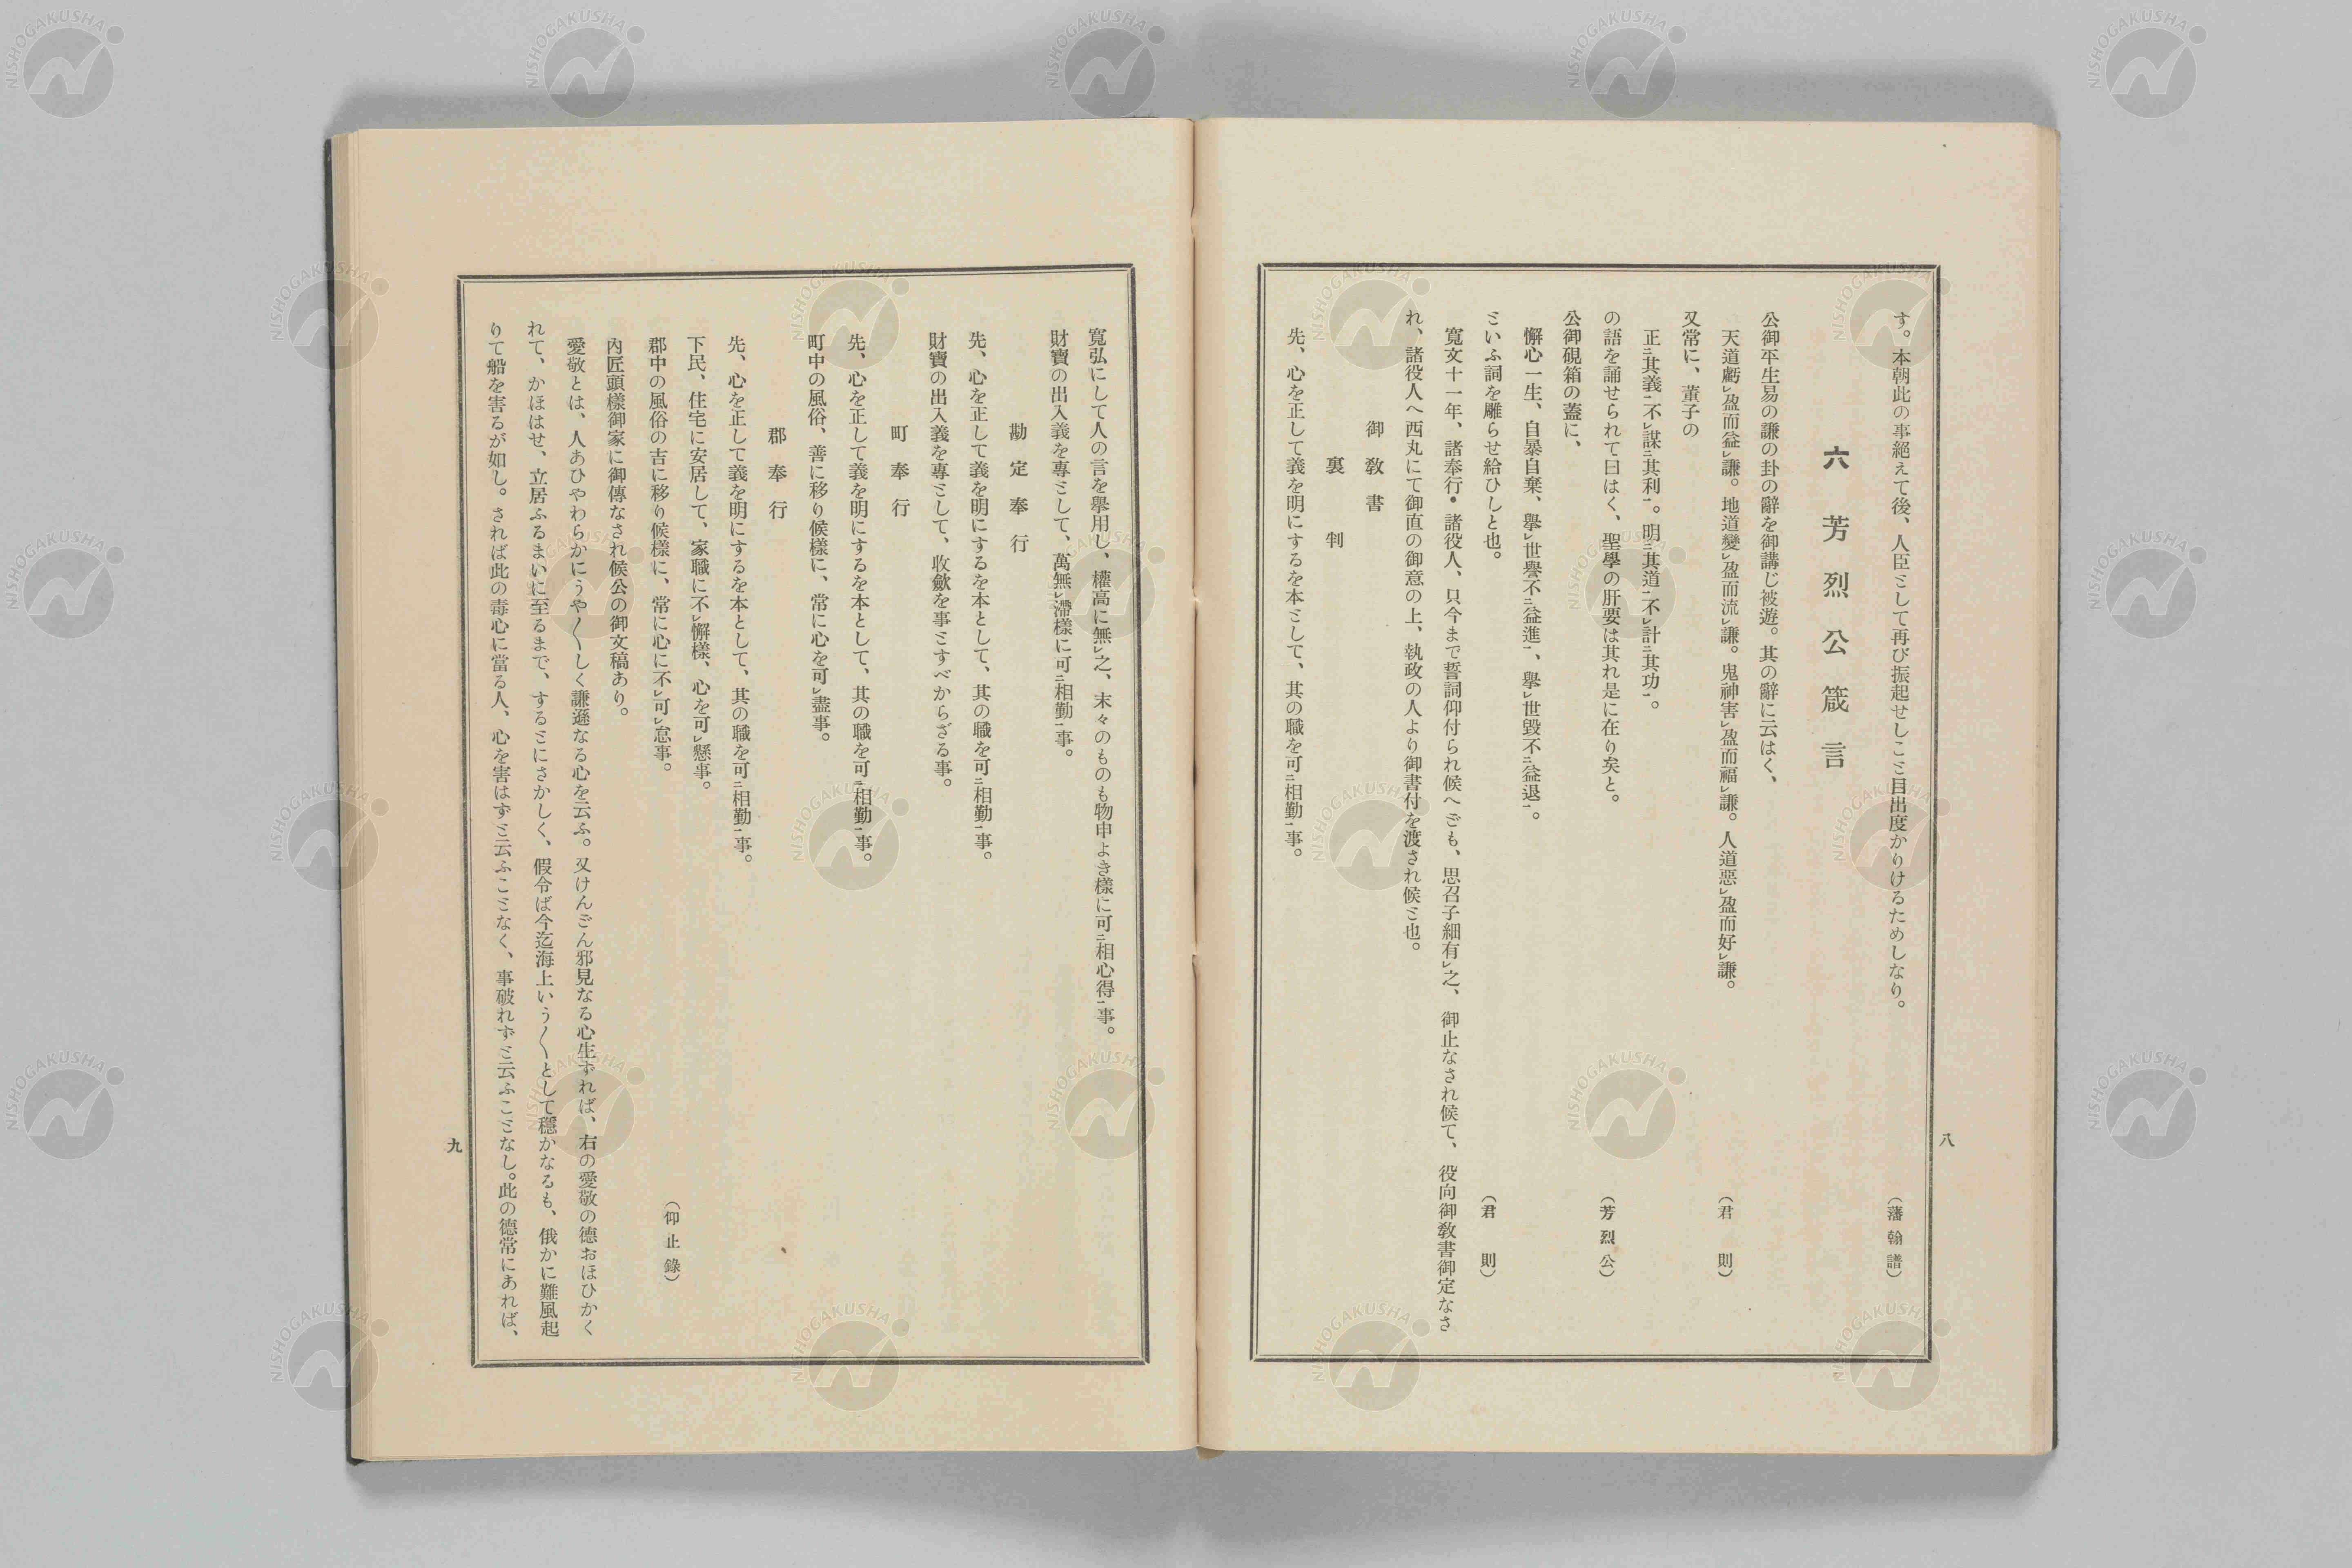 八
す。本朝此の事絕えて後、人臣として再び振起せしこと目出度かりけるためしなり。
（藩翰譜）
六　芳烈公箴言
公御平生易の謙の卦の辭を御講じ被遊。其の辭に云はく、
天道虧レ盈而益レ謙。地道變レ盈而流レ謙。鬼神害レ盈而福レ謙。人道惡レ盈而好レ謙。
（君　則）
又常に、董子の
正二其義一不レ謀二其利一。明二其道一不レ計二其功一。
の語を誦せられて曰はく、聖學の肝要は其れ是に在り矣と。
（芳烈公）
公御硯箱の蓋に、
懈心一生、自暴自棄、擧レ世譽不二益進一、擧レ世毀不二益退一。
といふ詞を雕らせ給ひしと也。
（君　則）
寬文十一年、諸奉行・諸役人、只今まで誓詞仰付られ候へども、思召子細有レ之、御止なされ候て、役向御敎書御定なさ
れ、諸役人へ西丸にて御直の御意の上、執政の人より御書付を渡され候と也。
御敎書
裏判
先、心を正して義を明にするを本として、其の職を可二相勤一事。
寬弘にして人の言を擧用し、權高に無レ之、末々のものも物申よき樣に可二相心得一事。
財寶の出入義を專として、萬無レ滯樣に可二相勤一事。
勘定奉行
先、心を正して義を明にするを本として、其の職を可二相勤一事。
財寶の出入義を專として、收斂を事とすべからざる事。
町奉行
先、心を正して義を明にするを本として、其の職を可二相勤一事。
町中の風俗、善に移り候樣に、常に心を可レ盡事。
郡奉行
先、心を正して義を明にするを本として、其の職を可二相勤一事。
下民、住宅に安居して、家職に不レ懈樣、心を可レ懸事。
郡中の風俗の吉に移り候樣に、常に心に不レ可レ怠事。
（仰止錄）
內匠頭樣御家に御傳なされ候公の御文稿あり。
愛敬とは、人あひやわらかにうや〱しく謙遜なる心を云ふ。又けんどん邪見なる心生ずれば、右の愛敬の德おほひかく
れて、かほはせ、立居ふるまいに至るまで、するとにさかしく、假令ば今迄海上いう〱として穩かなるも、俄かに難風起
りて船を害るが如し。されば此の毒心に當る人、心を害はずと云ふことなく、事破れずと云ふことなし。此の德常にあれば、
九